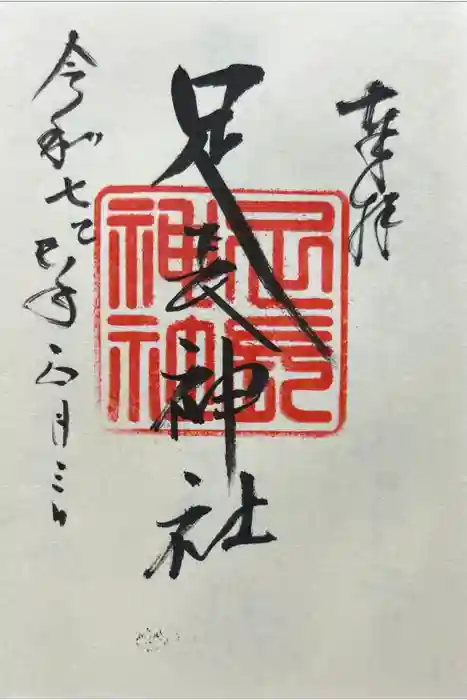 奉拝
足長神社
足長神社
令和七乙巳年正月三日